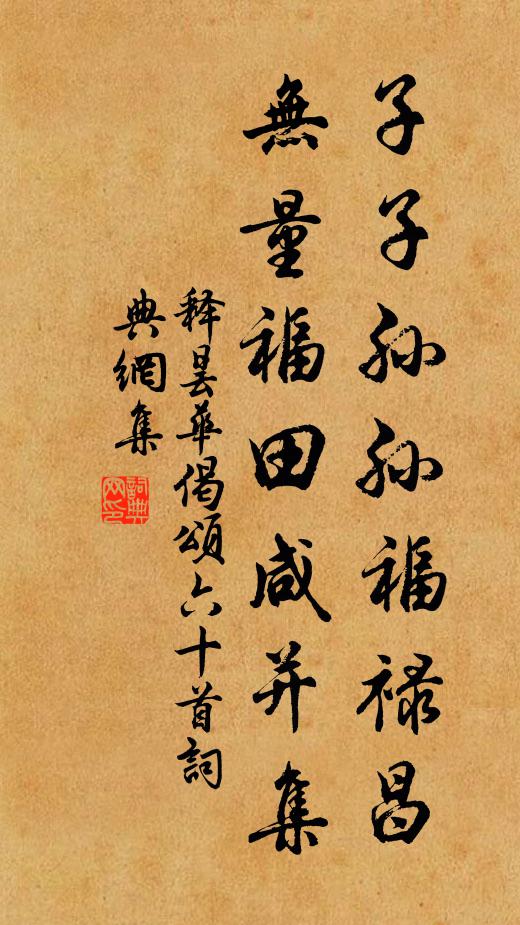 子子孙孙福禄昌
無量福田咸并集
释昙華偈頌六十首詞
典網集
詞典网印